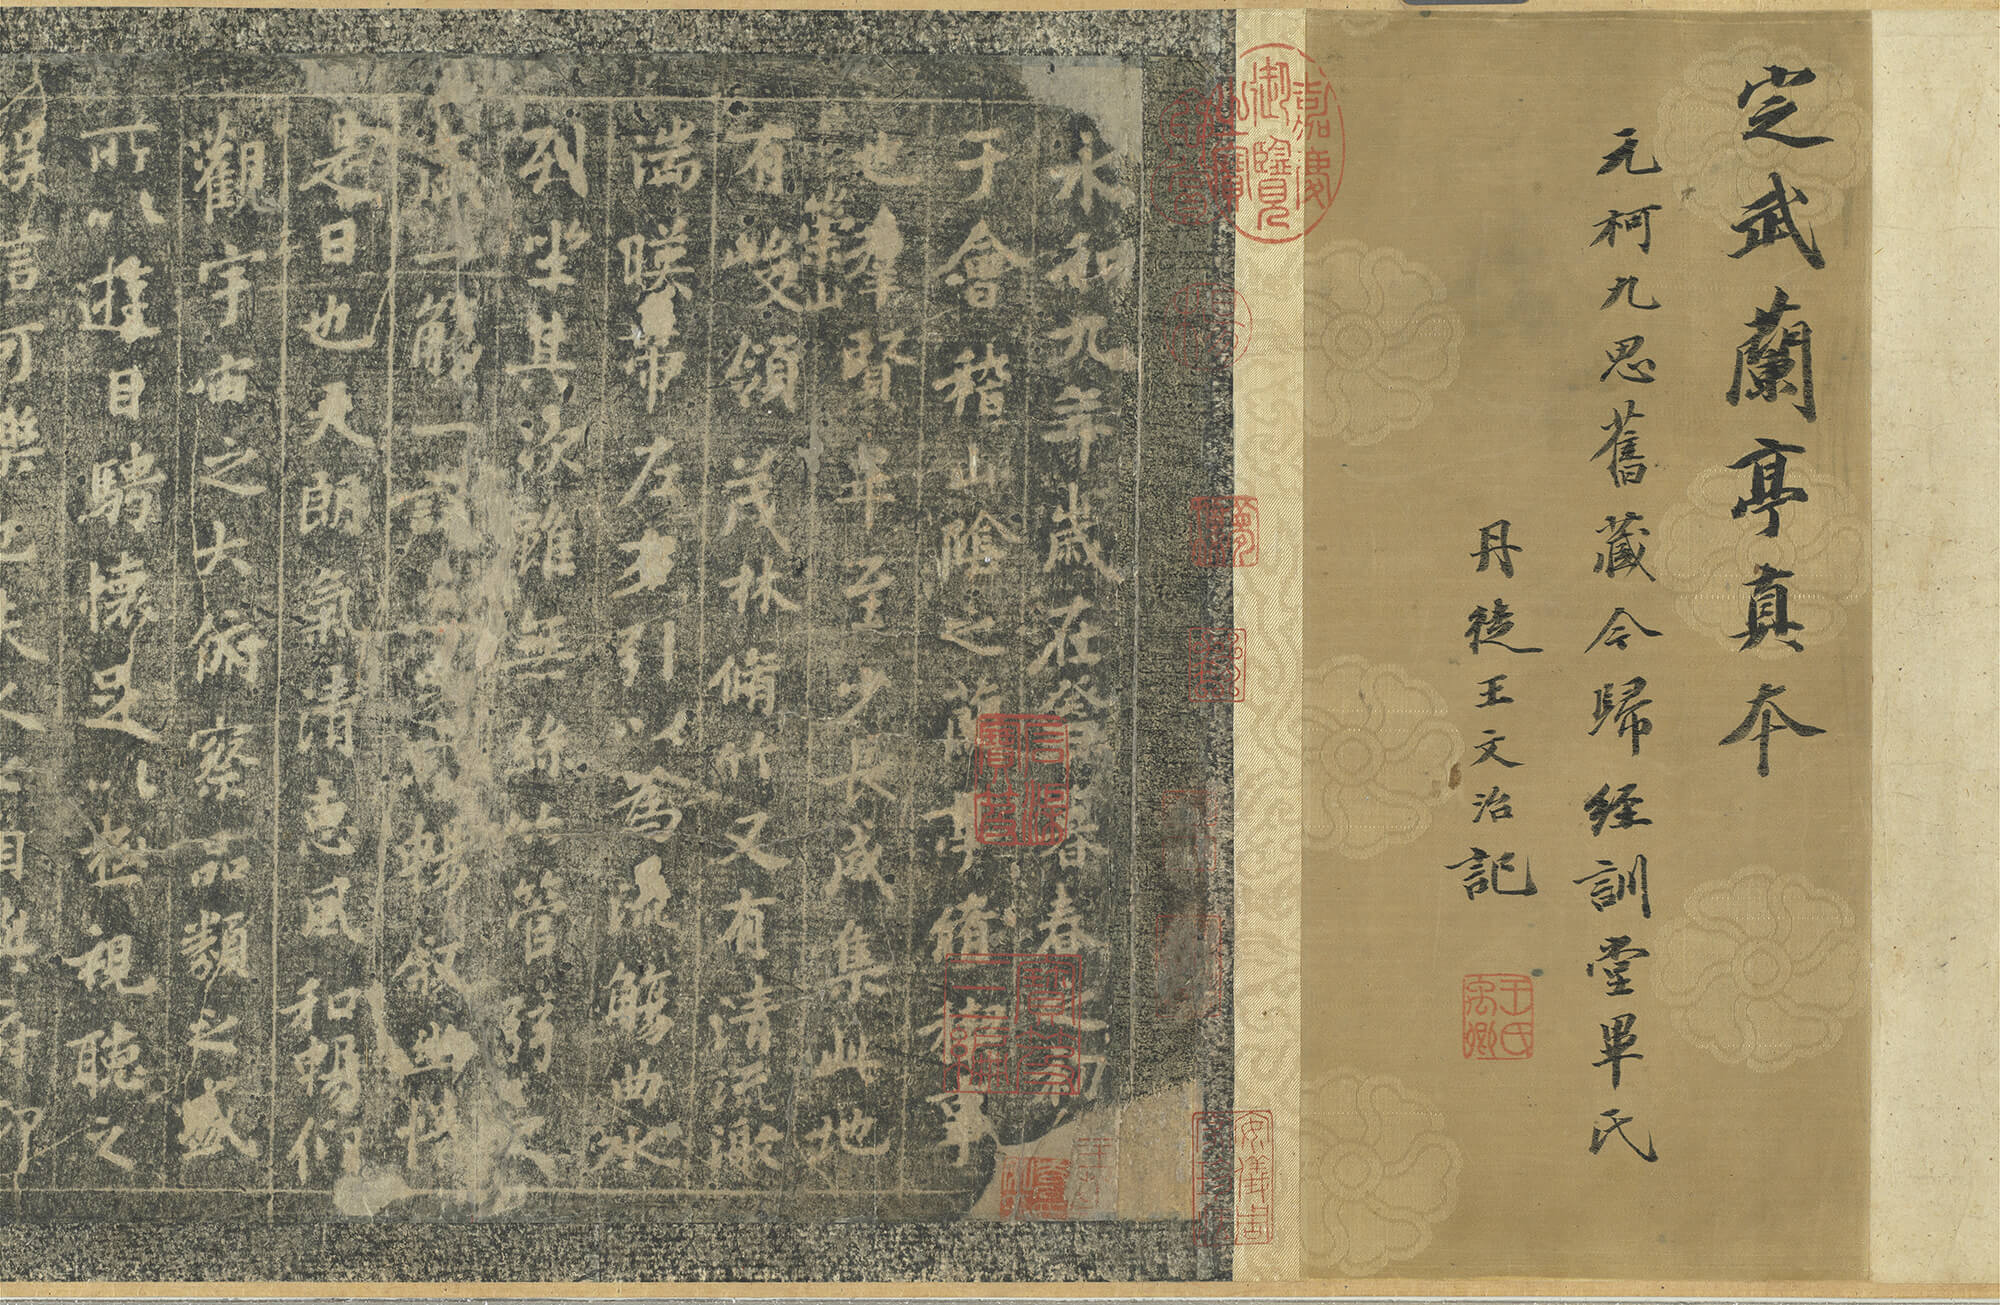 定武蘭亭真本
元柯九思舊藏今歸經訓堂畢氏
丹徒王文治記
王氏禹卿
嘉慶御覽
永和九年歲在癸丑暮春之初
于會稽山陰之蘭亭脩稧事
也羣賢畢至少長咸集此地
崇山
有峻領茂林脩竹又有清流激
湍暎帶左右引以為流觴曲水
列坐其次雖無絲竹管弦之
盛一觴一詠亦足以暢敘幽情
是日也天朗氣清惠風和暢仰
觀宇宙之大俯察品類之盛
所以遊目騁懷足以極視聽之
娛信可樂也夫人之相與俯仰